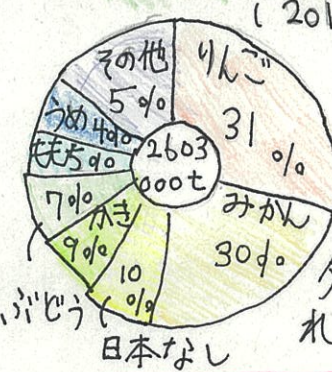 (201
りんご
31
%
みかん
30%
日本なし
10
%
かき
9%
ぶどう
7%
もも5%
うめ4%
その他
5%
2603
000t
れ